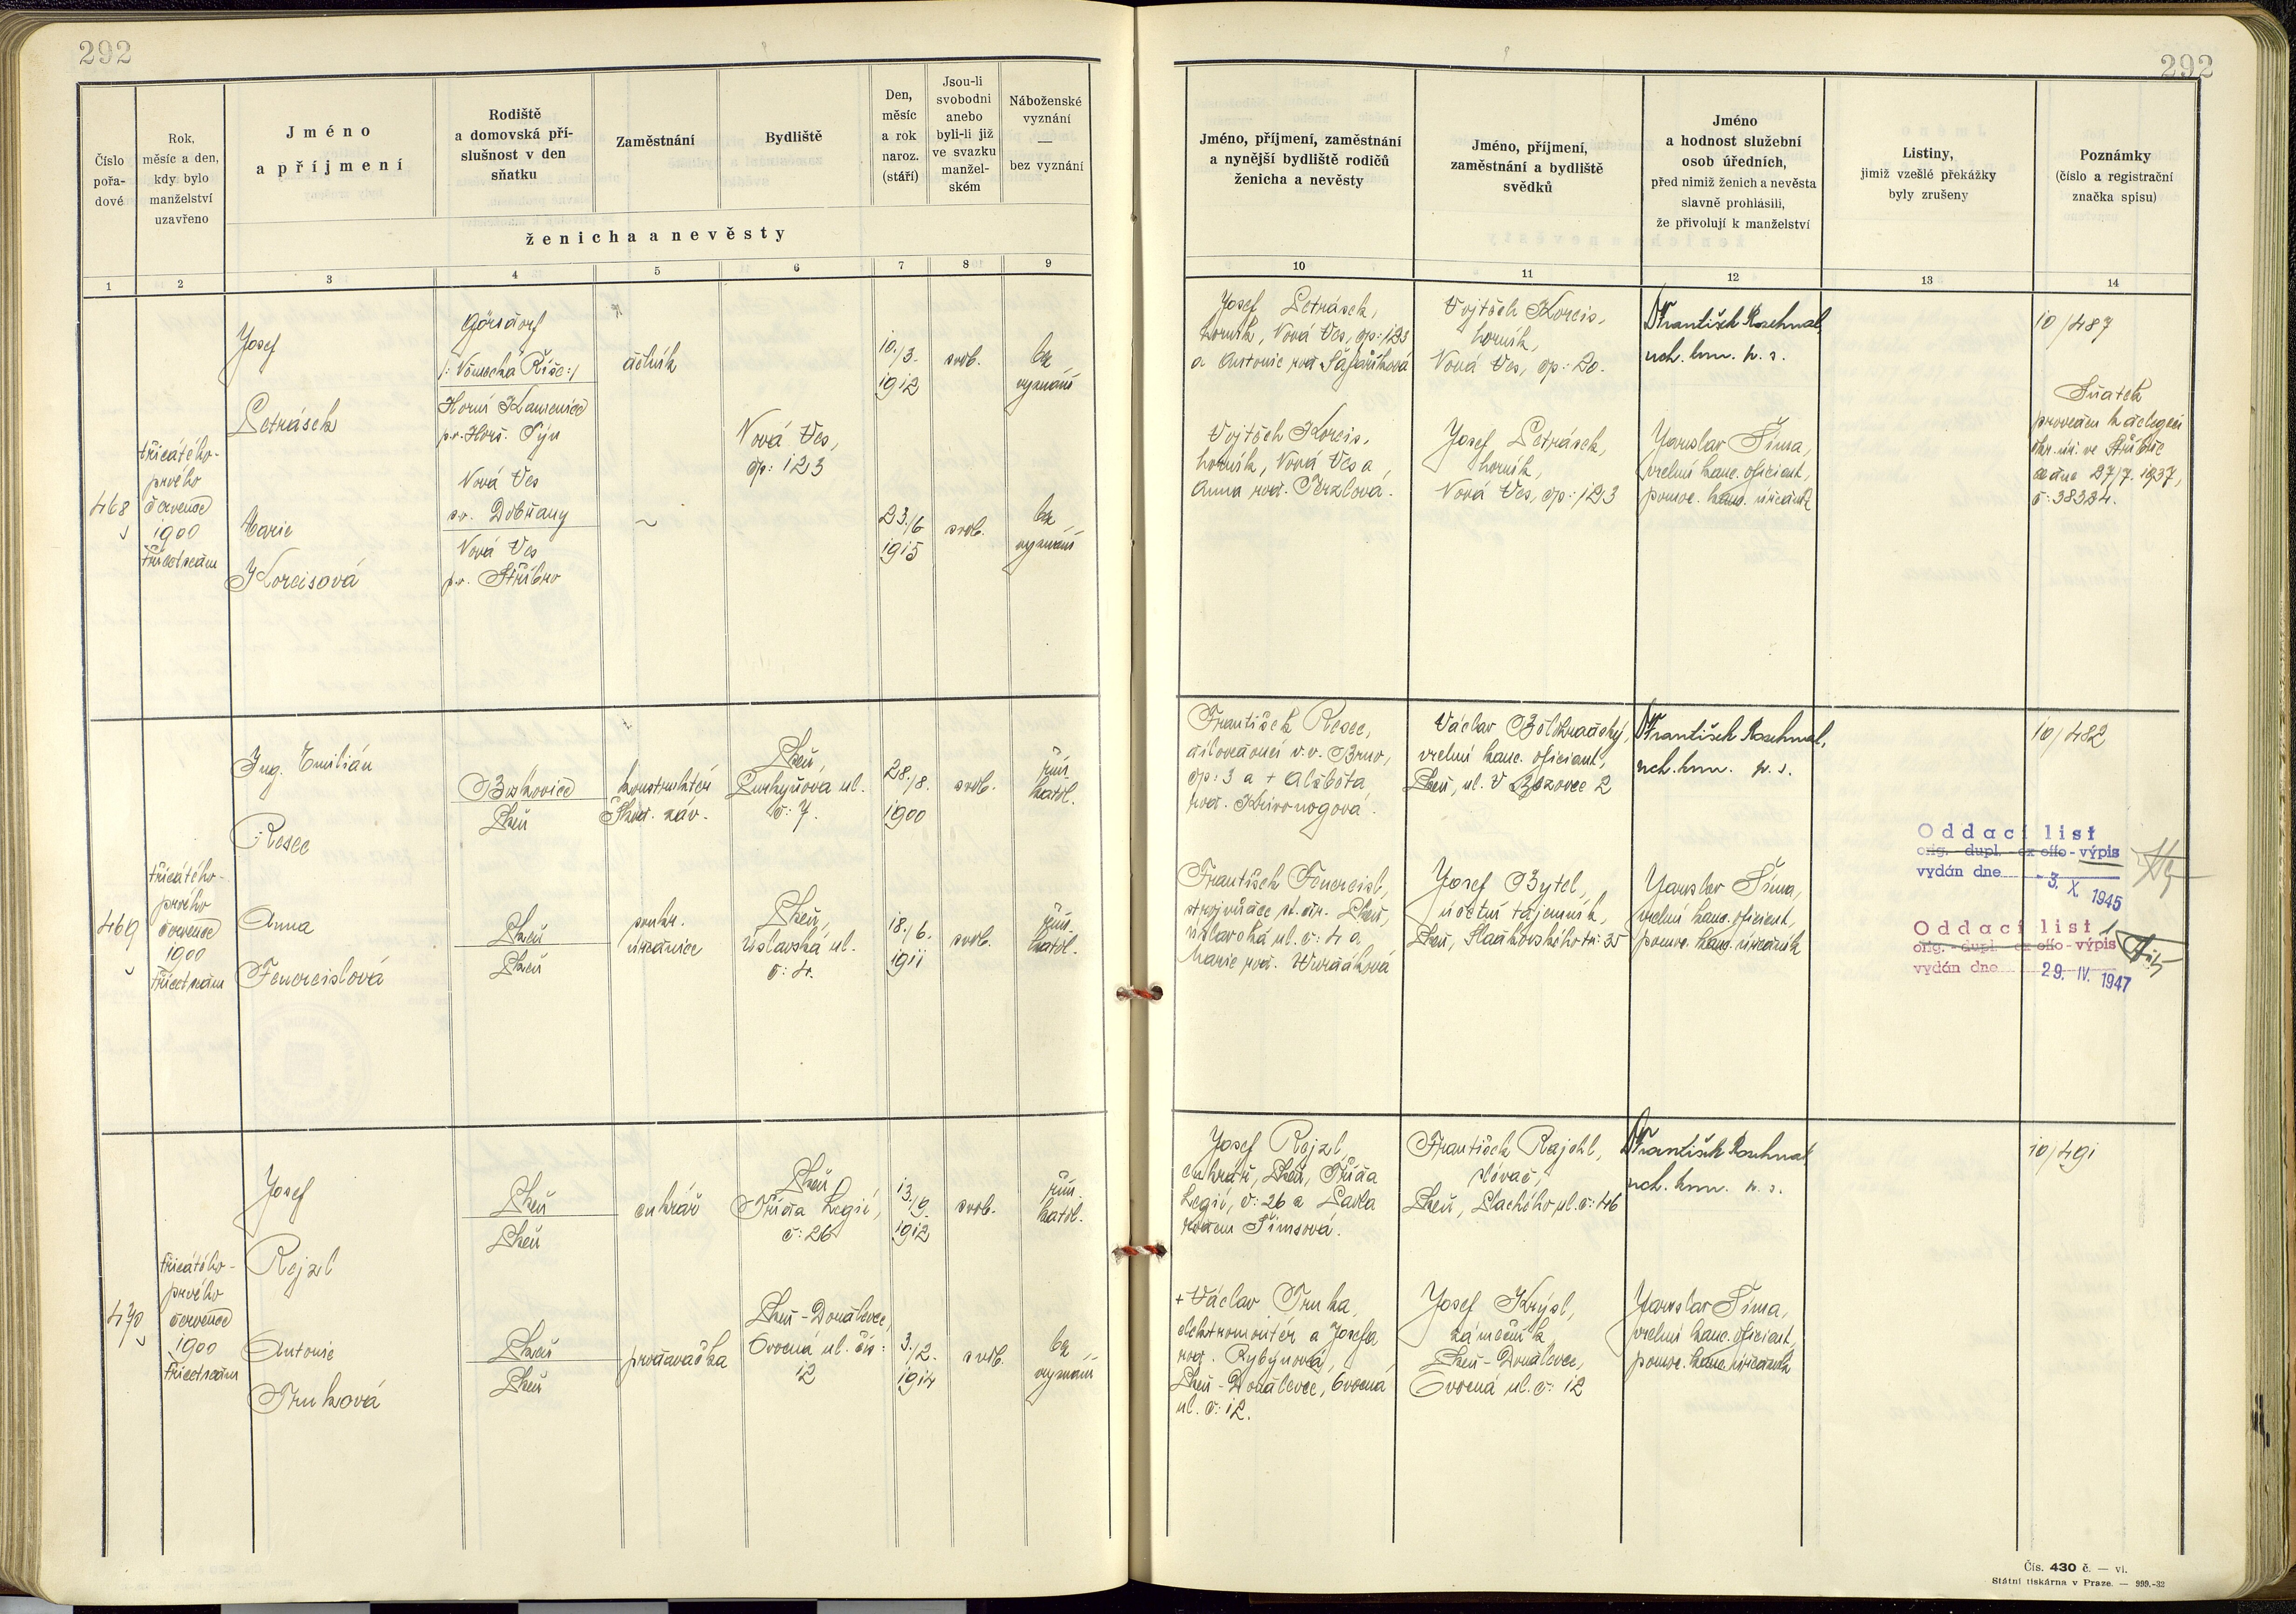 292
292
Číslo
pořa-
dové
Rok,
měsíc a den,
kdy bylo
manželství
uzavřeno
Jméno
a příjmení
Rodiště
a domovská pří-
slušnost v den
sňatku
Zaměstnání
Bydliště
Den,
měsíc
a rok
naroz.
(stáří)
Jsou-li
svobodni
anebo
byli-li již
ve svazku
manžel-
ském
Náboženské
vyznání
—
bez vyznání
ženicha a nevěsty
Jméno, příjmení, zaměstnání
a nynější bydliště rodičů
ženicha a nevěsty
Jméno, příjmení,
zaměstnání a bydliště
svědků
Jméno
a hodnost služební
osob úředních,
před nimiž ženich a nevěsta
slavně prohlásili,
že přivolují k manželství
Listiny,
jimiž vzešlé překážky
byly zrušeny
Poznámky
(číslo a registrační
značka spisu)
1 2 3 4 5 6 7 8 9 10 11 12 13 14
468
třicátého-
prvého
července
1900
třicetsedm
Josef
Petrásek
Görsdorf
/: Německá Říše :/
Horní Kamenice
p.o. Horš. Týn
dělník
Nová Ves,
čp: 123
10./3.
1912
svob.
bez
vyznání
Marie
Korcisová
Nová Ves
s.o. Dobřany
Nová Ves
p.o. Stříbro
~
23./6.
1915
svob.
bez
vyznání
Josef Petrásek,
horník, Nová Ves, čp: 123
a Antonie roz.
Vojtěch Korcis,
horník, Nová Ves a
Anna roz.
Vojtěch Korcis,
horník,
Nová Ves, čp: 20.
Josef Petrásek,
horník,
Nová Ves, čp: 123
Dr František
nch. kom. v. r.
Jaroslav Šíma,
vrchní kanc. oficiant,
pomoc. kanc. úředník
10/487
Sňatek
proveden z delegací
okr. úř. ve Stříbře
ze dne 27/7. 1937,
č: 38324.
469
třicátého-
prvého
července
1900
třicetsedm
Ing. Emilián
Resec
Boskovice
Plzeň
konstruktér
Škod. záv.
Plzeň,
Purkyňova ul.
č: 7.
28./8.
1900
svob.
řím.
katol.
Anna
Fenereislová
Plzeň
Plzeň
soukr.
úřednice
Plzeň,
Úslavská ul.
č: 4.
18./6.
1911
svob.
řím.
katol.
František Resec,
v.v. Brno,
čp: 3 a + Alžběta,
roz. Křivonogová.
František Fenereisl,
strojvůdce st. dr. Plzeň,
Úslavská ul. č: 4 a
Marie roz.
Václav
vrchní kanc. oficiant,
Plzeň, ul. V Bezovce 2
Josef Bytel,
účetní tajemník,
Plzeň, Sladkovského tř: 35
Dr František
nch. kom. v. r.
Jaroslav Šíma,
vrchní kanc. oficiant,
pomoc. kanc. úředník
10/482
Oddací list
orig.- dupl.- ex offo - výpis
vydán dne -3. X. 1945
Oddací list
orig.- dupl.- ex offo - výpis
vydán dne 29. IV. 1947
470
třicátého-
prvého
července
1900
třicetsedm
Josef
Rejzl
Plzeň
Plzeň
cukrář
Plzeň,
Třída Legií,
č: 26
13./9.
1912
svob.
řím.
katol.
Antonie
Truková
Plzeň
Plzeň
prodavačka
Plzeň-Doudlevce,
Ovocná ul. čís:
12
3./2.
1914
svob.
bez
vyznání
Josef Rejzl,
cukrář, Plzeň, Třída
Legií, č: 26 a Pavla
rozem Šimsová.
+ Václav Truka,
elektromontér a Josefa
roz. Rybynová,
Plzeň-Doudlevce, Ovocná
ul. č: 12.
František Rajchl,
slévač,
Plzeň, Plachého ul. č: 46
Josef Krýsl,
zámečník,
Plzeň-Doudlevce,
Ovocná ul. č: 12
Dr František
nch. kom. v. r.
Jaroslav Šíma,
vrchní kanc. oficiant,
pomoc. kanc. úředník
10/491
Čís. 430 č. — vi.
Státní tiskárna v Praze. — 999.-32